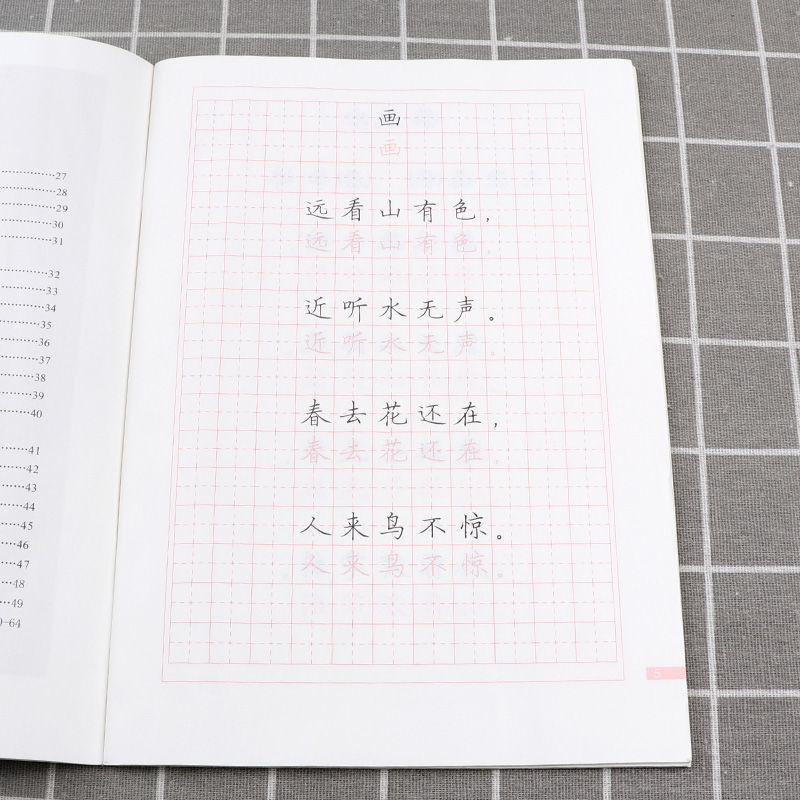 27
28
29
30
31
32
33
34
35
36
37
38
39
40
41
42
43
44
45
46
47
48
49
-64
画
画
远看山有色,
远看山有色,
近听水无声。
近听水无声。
春去花还在,
春去花还在,
人来鸟不惊。
人来鸟不惊。
5